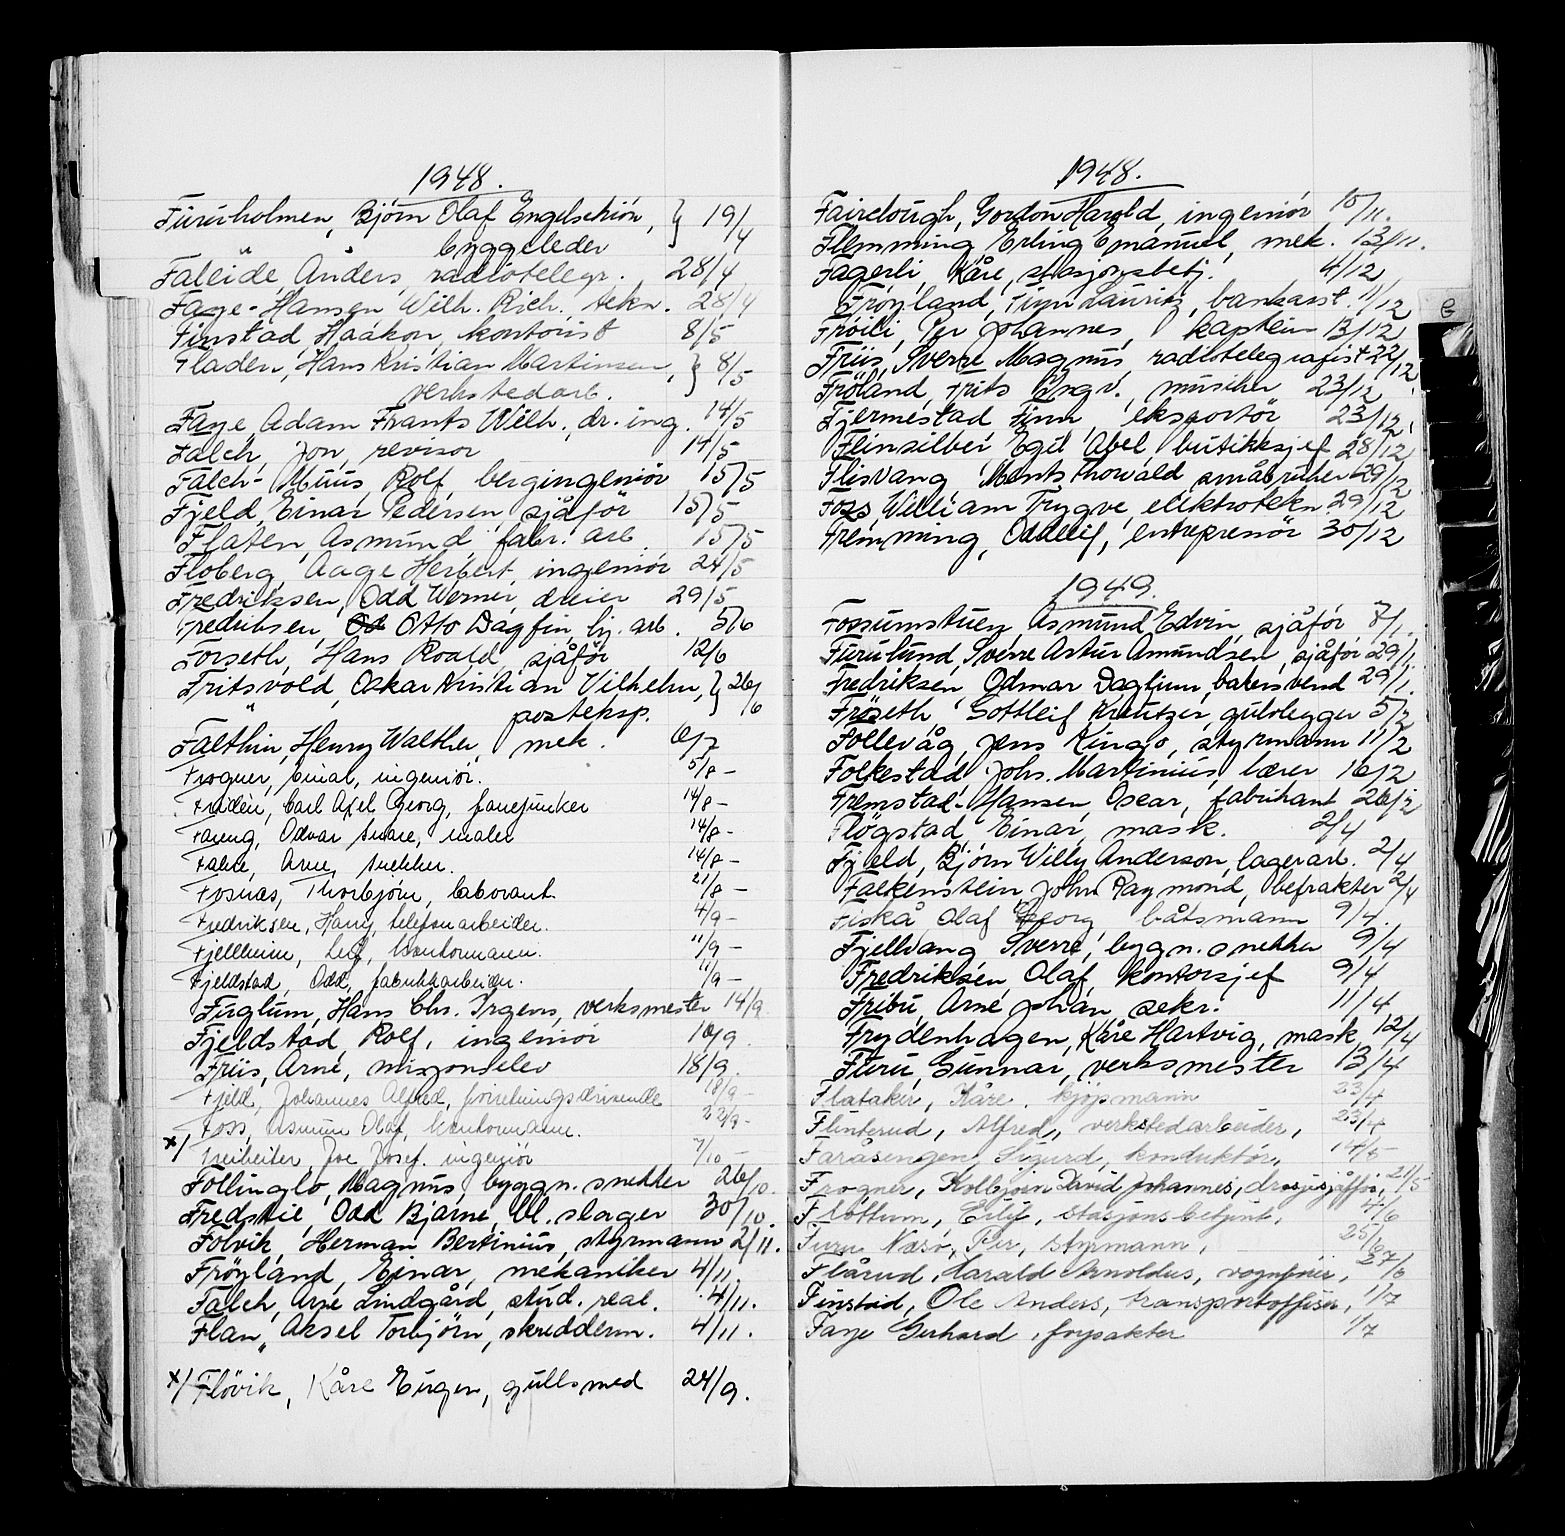 1948.
Furuholmen, Bjørn Olaf Engelschiøn, } 19/4
byggeleder
Faleide, Anders, radiotelegr. 28/4
Faye-Hansen Wilh. Rich., tekn. 28/4
Finstad, Haakon, kontorist 8/5
Fladen, Hans Kristian Martinsen, } 8/5
verkstedarb.
Faye, Adam Frants Wilh., dr. ing. 14/5
Falch, Jon, revisor 14/5
Falch-Muus, Rolf, bergingeniør 15/5
Fjeld, Einar Pedersen, sjåfør 15/5
Flaten, Asmund fabr. arb. 15/5
Floberg, Aage Herbert, ingeniør 24/5
Fredriksen, Odd Werner, dreier 29/5
Fredriksen, Otto Dagfin, hj. arb. 5/6
Forseth, Hans Roald, sjåfør 12/6
Fritsvold, Oskar Kristian Vilhelm, } 26/6
posteksp.
Falthin, Henry Walther, mek. 6/7
Frogner, Einar, ingeniør. 5/8 -
Fridén, Carl Axel Georg, fanejunker 14/8 -
Odvar maler 14/8 -
Arne, snekker. 14/8 -
Fosnæs, Thorbjørn, laborant. 21/8 -
Fredriksen, Harry, telefonarbeider. 4/9 -
Fjellheim, Leif, kontormann. 11/9 -
Fjeldstad, Odd, fabrikkarbeider. 11/9 -
Fuglum, Hans Chr. Irgens, verksmester 14/9.
Fjeldstad Rolf, ingeniør 16/9.
Friis, Arne, misjonselev 18/9.
Fjeld, Johannes Alfred, forretningsdrivende 18/9 -
Foss, Asmun Olaf, kontormann. 22/9 -
x/ Freiheiter, Joe Josef. ingeniør 7/10 -
Follinglo, Magnus, byggn. snekker 26/10.
Fredstie, Odd Bjarne, bl. slager 30/10.
Folvik, Herman Bertinius, styrmann 2/11.
Frøyland, Einar, mekaniker 4/11.
Falch, Arne Lindgård, stud. real. 4/11.
Flan, Aksel Torbjørn, skredderm. 4/11.
x/ Fløvik, Kåre Eugen, gullsmed 24/9.
1948.
Fairclough, Gordon Harold, ingeniør 10/11.
Flemming Erling Emanuel, mek. 13/11.
Fagerli, Kåre, stasjonsbetj. 4/12
Frøyland, Finn Lauritz, bankass. 11/12
Frøili, Per Johannes, kaptein 13/12
Friis, Sverre Magnus, radiotelegrafist 22/12
Frøland, Frits Yngv., musiker 23/12
Fjermestad Finn, eksportør 23/12.
Flinsilber Egil Abel butikksjef 28/12
Flisvang Monts Thorvald småbruker 29/12
Foss William Trygve, elektrotekn 29/12
Fremming, Oddleif, entreprenør 30/12
1949.
Fossumstuen Asmund Edvin, sjåfør 8/1.
Furulund, Sverre Artur Amundsen, sjåfør 29/1.
Fredriksen, Odmar Dagfinn, bakersvend 29/1.
Frøseth, Gottleif Kreutzer, gulvlegger 5/2
Follevåg, Jens Kingo, styrmann 11/2
Folkestad Johs. Martinius, lærer 16/2
Fremstad-Hansen, Oscar, fabrikant 26/2
Fløgstad, Einar, mask. 2/4
Fjeld, Bjørn Willy Anderson, lagerarb. 2/4
Falkenstein John Raymond, befrakter 2/4
Fiskå Olaf Georg, båtsmann 9/4.
Fjellvang Sverre, bygn. snekker 9/4
Fredriksen, Olaf, kontorsjef 9/4
Fribu, Arne Johan, sekr. 11/4
Frydenhagen, Kåre Hartvig, mask 12/4
Furu, Gunnar, verksmester 13/4
Flataker, Kåre. kjøpmann 23/4
Flinterud, Alfred, verkstedarbeider, 23/4
Faråsengen, Sigurd, konduktør, 14/5
Frogner, Kolbjørn David Johannes, drosjesjåfør, 21/5
Fløttum, Erling, stasjonsbetjent, 4/6
Furu Næsø, Per, styrmann, 25/6
Flårud, Harald Arnoldus, vognfører, 27/6
Finstad, Ole Anders, transportoffiser, 1/7
Faye Gerhard, forpakter 1/7
G